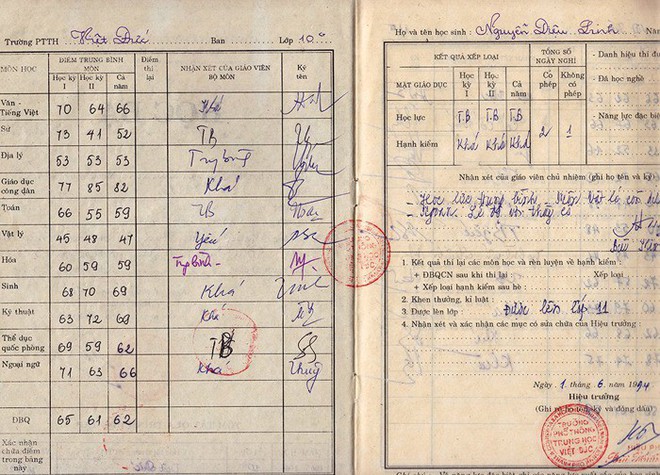 Trường PTTH Việt Đức Ban Lớp 10
MÔN HỌC
ĐIỂM TRUNG BÌNH MÔN
Học kỳ I
Học kỳ II
Cả năm
Điểm thi lại
NHẬN XÉT CỦA GIÁO VIÊN BỘ MÔN
Ký tên
Văn - Tiếng Việt 70 64 66 Khá
Sử 73 41 52 TB
Địa lý 53 53 53 Trg bình
Giáo dục công dân 77 85 82 Khá
Toán 66 55 59 TB
Vật lý 45 48 47 Yếu
Hóa 60 59 59 Trg bình
Sinh 68 70 69 Khá
Kỹ thuật 63 72 69 Khá
Thể dục quốc phòng 69 59 62 TB
Ngoại ngữ 71 63 66 Khá Thuỷ
ĐBQ 65 61 62
Xác nhận chữa điểm trong bảng này
Họ và tên học sinh: Nguyễn Diệu Linh
KẾT QUẢ XẾP LOẠI
TỔNG SỐ NGÀY NGHỈ
MẶT GIÁO DỤC
Học kỳ I
Học kỳ II
Cả năm
Có phép
Không có phép
Học lực T.B T.B T.B
Hạnh kiểm Khá Khá Khá
2 1
- Danh hiệu thi đu
- Đã học nghề
- Năng lực đặc biệ
Nhận xét của giáo viên chủ nhiệm (ghi họ tên và ký)
- Học lực trung bình - Môn vật lí còn
1. Kết quả thi lại các môn học và rèn luyện về hạnh kiểm:
+ ĐBQCN sau khi thi lại: Xếp loại
+ Xếp loại hạnh kiểm sau hè:
2. Khen thưởng, kỉ luật:
3. Được lên lớp: Được lên lớp 11
4. Nhận xét và xác nhận các mục có sửa chữa của Hiệu trưởng:
Ngày 1 tháng 6 năm 1994
Hiệu trưởng
TRƯỜNG PHỔ THÔNG TRUNG HỌC VIỆT ĐỨC